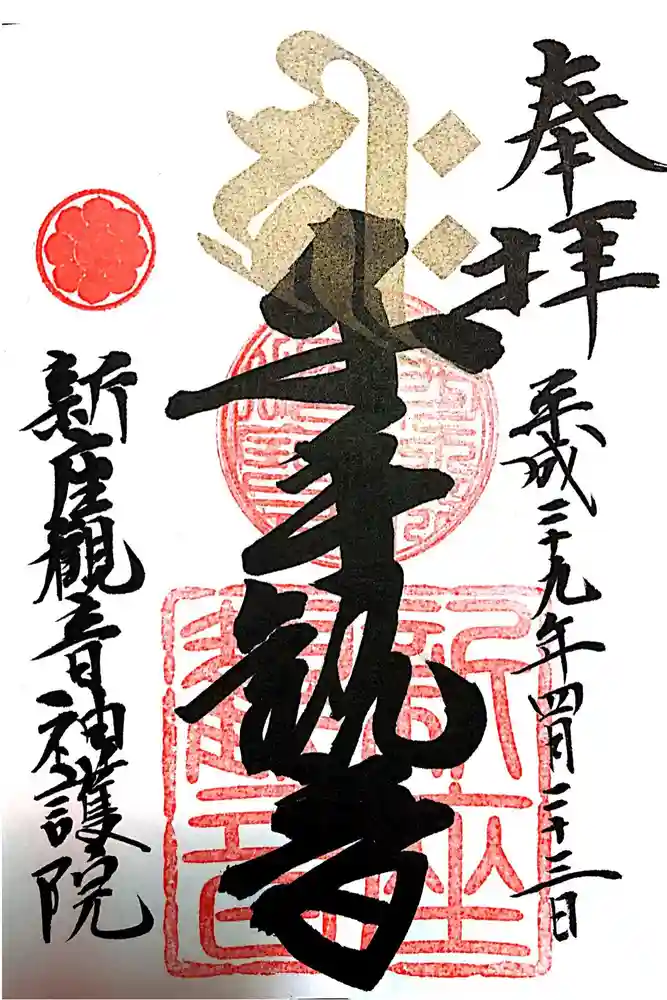 奉拝
平成二十九年四月二十三日
千手観音
新座観音神護院
新座
観音